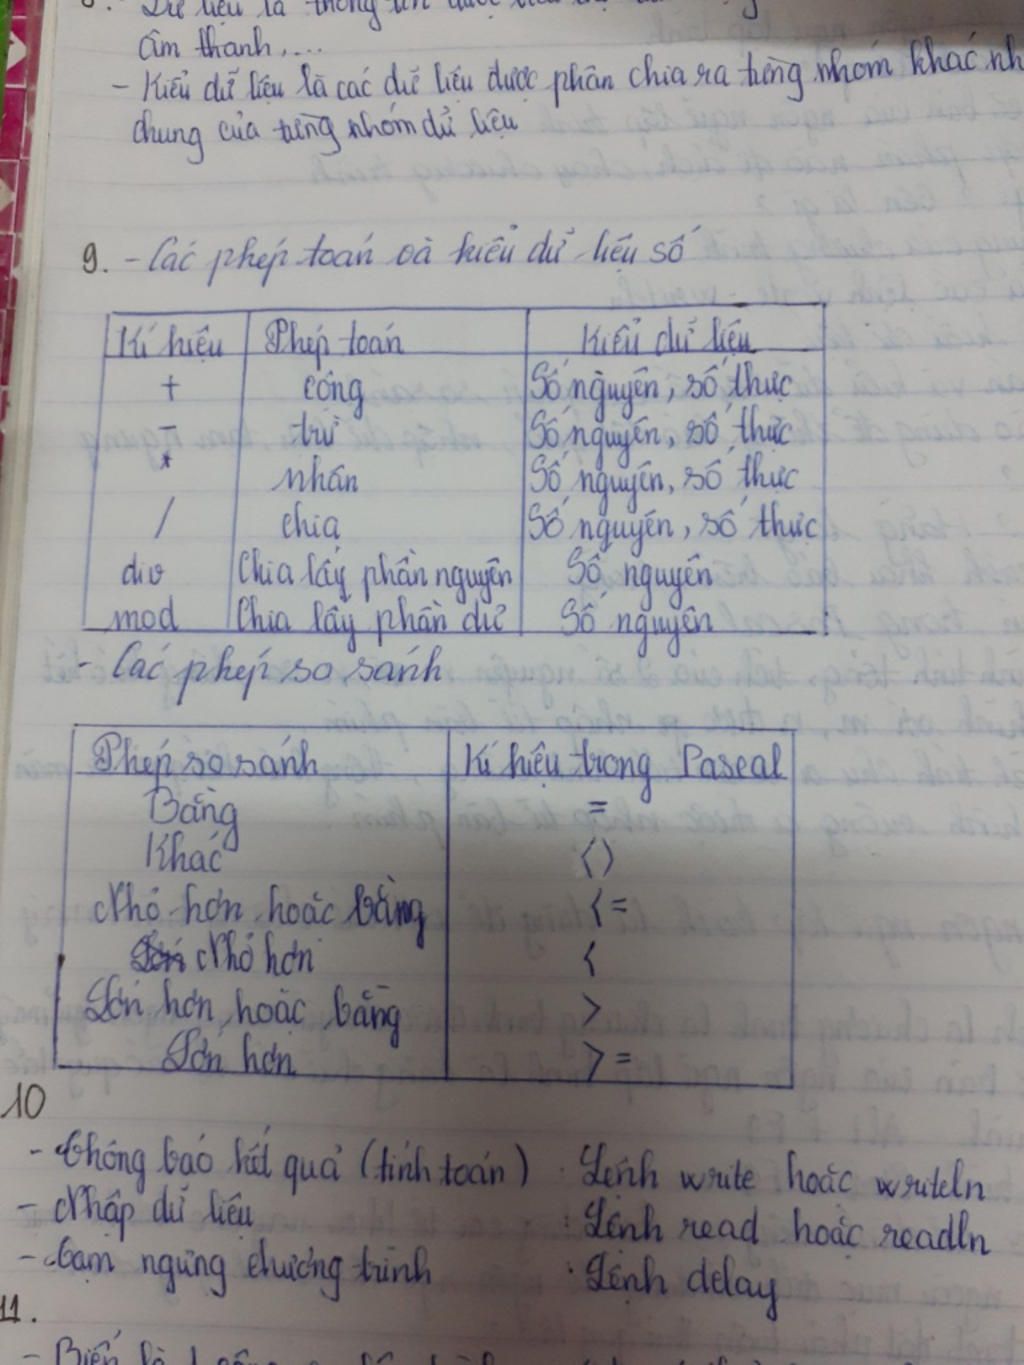 8. Dữ liệu là thông tin được
âm thanh,...
- Kiểu dữ liệu là các dữ liệu được phân chia ra từng nhóm khác nh
chung của từng nhóm dữ liệu
9. - Các phép toán và kiểu dữ liệu số
Kí hiệu Phép toán Kiểu dữ liệu
+ cộng Số nguyên, số thực
- trừ Số nguyên, số thực
* nhân Số nguyên, số thực
/ chia Số nguyên, số thực
div Chia lấy phần nguyên Số nguyên
mod Chia lấy phần dư Số nguyên
- Các phép so sánh
Phép so sánh Kí hiệu trong Pascal
Bằng =
Khác <>
Nhỏ hơn hoặc bằng <=
Nhỏ hơn <
Lớn hơn hoặc bằng >
Lớn hơn >=
10
- Thông báo kết quả (tính toán) : Lệnh write hoặc writeln
- Nhập dữ liệu : Lệnh read hoặc readln
- Tạm ngừng chương trình : Lệnh delay
11.
- Biến là 1